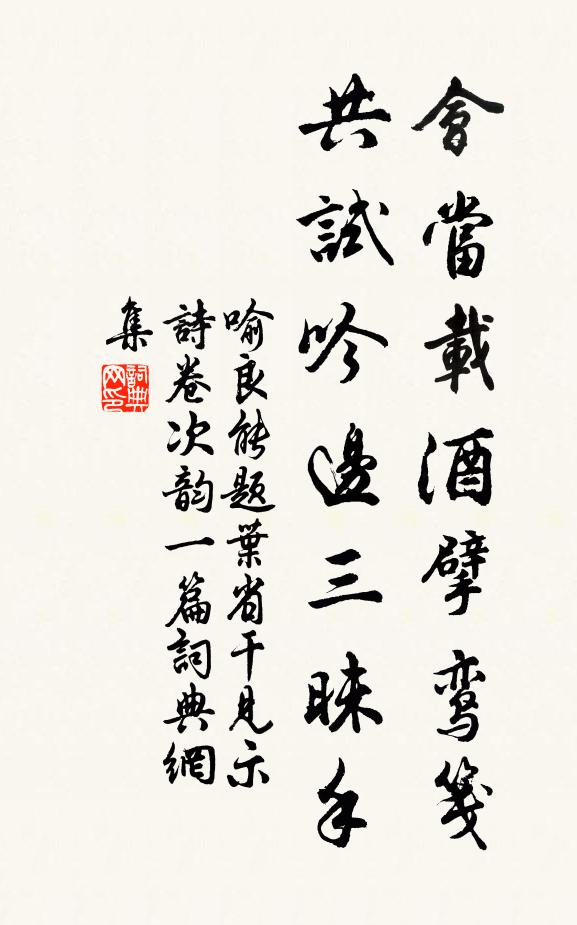 會當載酒擘鸾箋
共試吟邊三昧手
喻良能題葉省干見示
詩卷次韵一篇詞典網
集
詞典网印